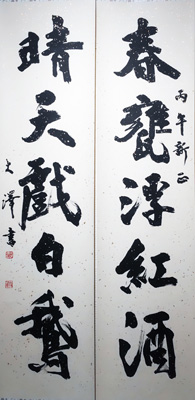 春甕浮紅酒
丙午新正
晴天戲白鵝
大澤書